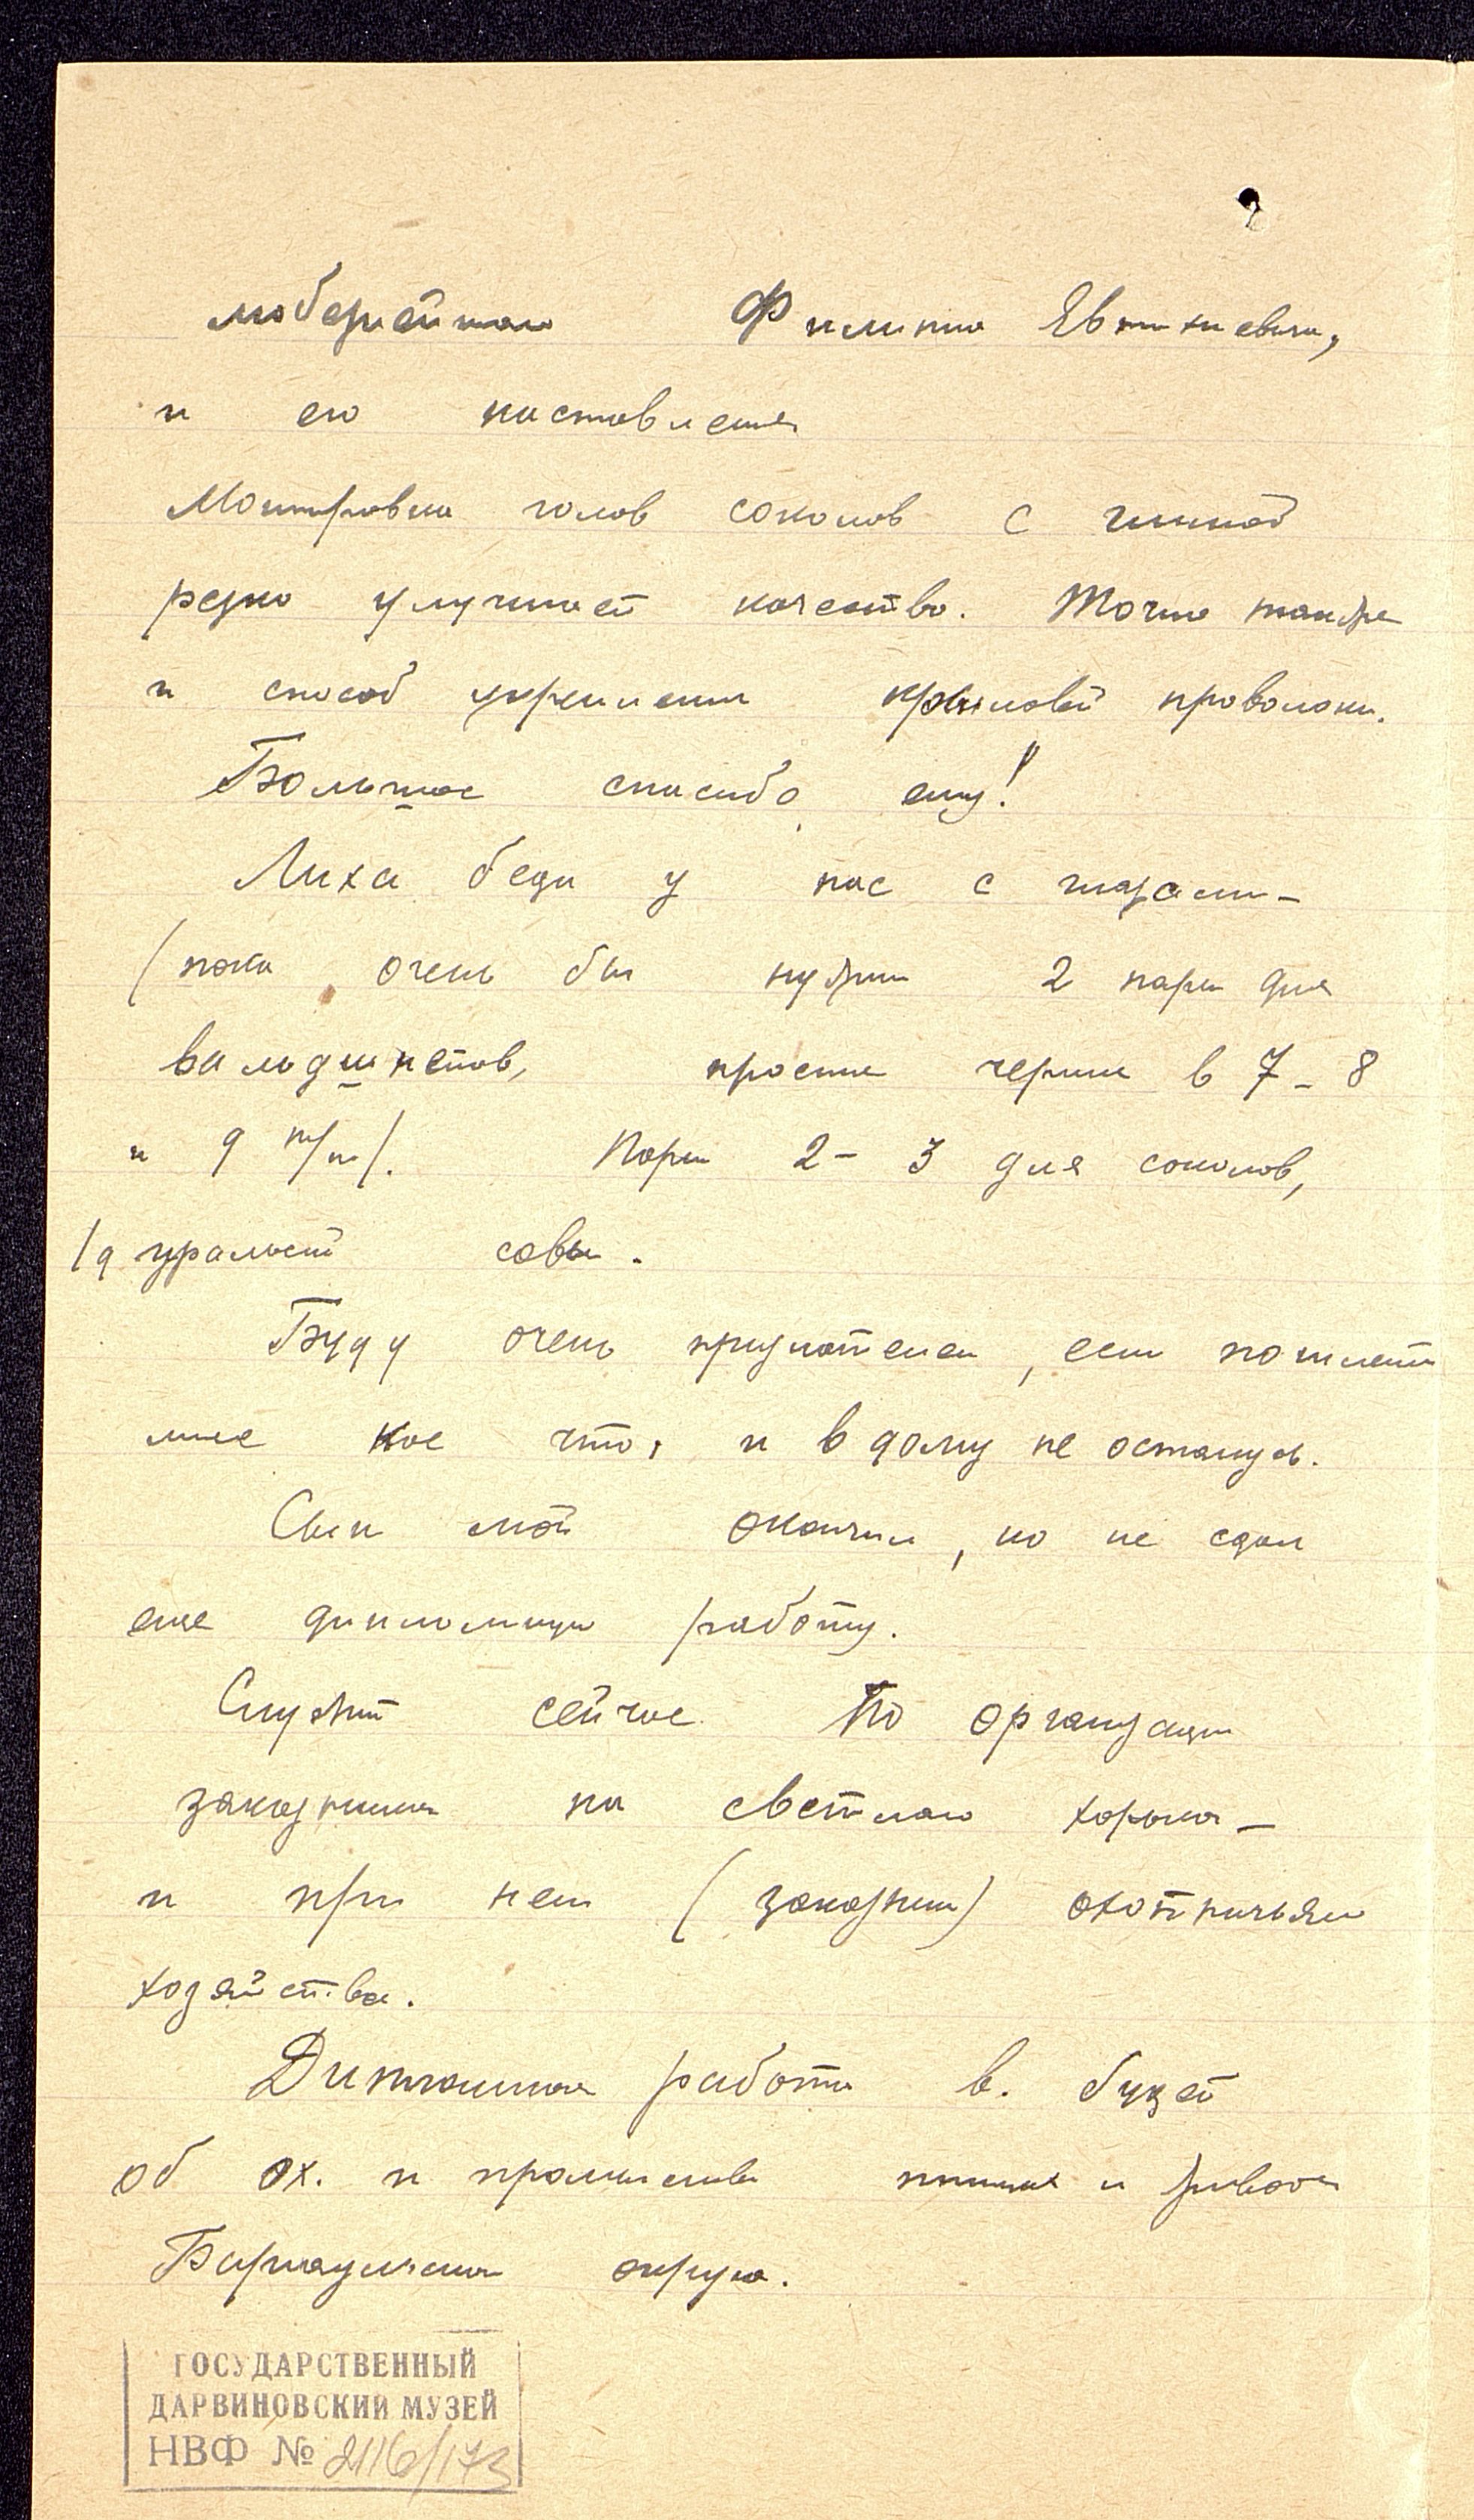 любезнейшего Филиппа Евтихиевича,
и его наставления
Монтировка голов соколов с глиной
резко улучшает качество. Точно также
и способ укрепления крыловой проволоки.
Большое спасибо ему!
Лиха беда у нас с глазами –
(пока очень бы нужны 2 пары для
вальдшнепов, простые черные в 7 – 8
и 9 m/m/. Пары 2 – 3 для соколов,
/д уральской совы.
Буду очень признателен, если пошлете
мне кое что, и в долгу не останусь.
Сын мой окончил, но не сдал
еще дипломную работу.
Служит сейчас по организации
заказника на светлого хорька –
и при нем (заказнике) охотничьего
хозяйства.
Дипломная работа в. будет
об ох. и промысловых птицах и
Барнаульского округа.
ГОСУДАРСТВЕННЫЙ
ДАРВИНОВСКИЙ МУЗЕЙ
НВФ № 2116/173